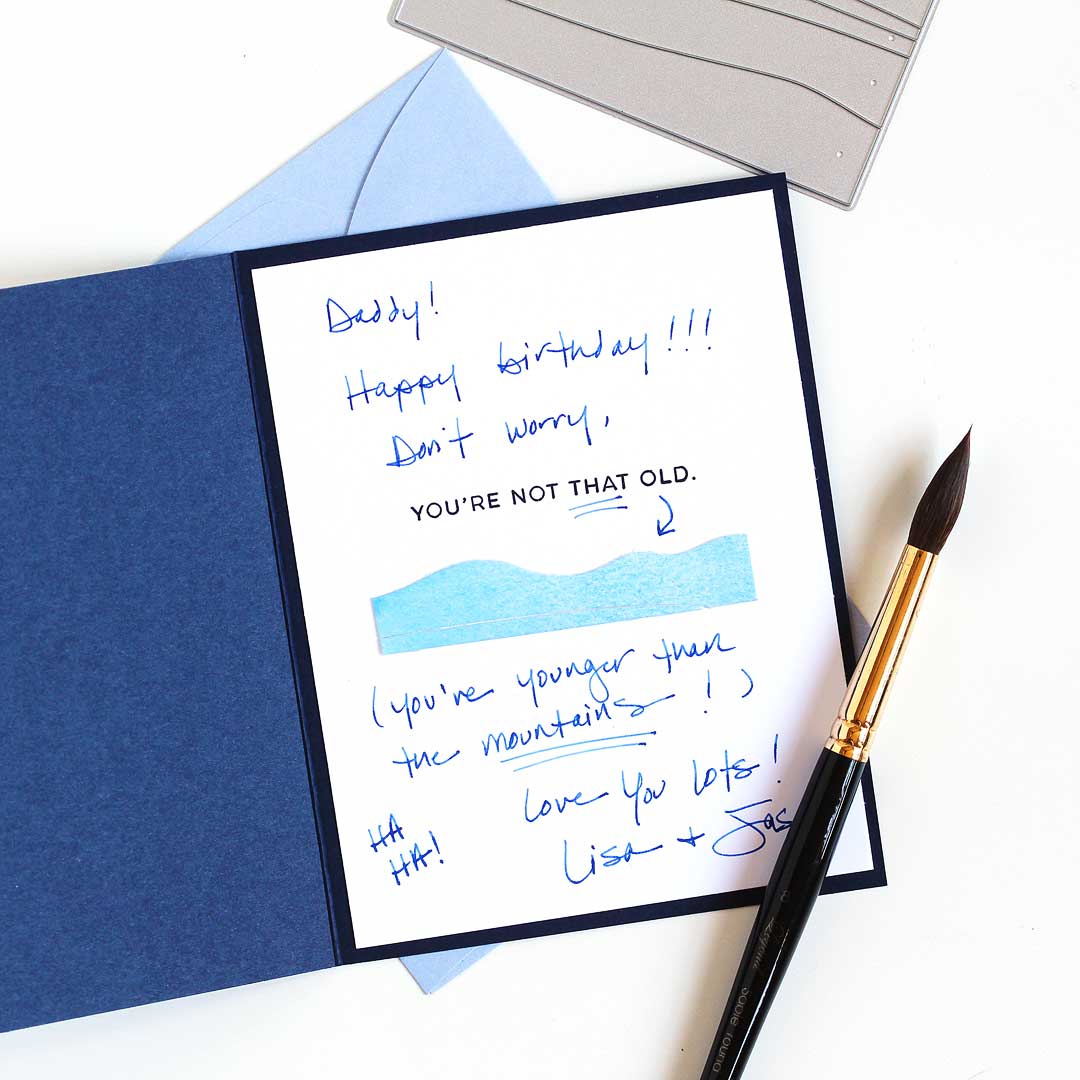 Daddy!
Happy birthday!!!
Don't worry,
YOU'RE NOT THAT OLD.
(you're younger than
the mountains!)
Love you lots!
HA
HA!
Lisa + Jas
sable round